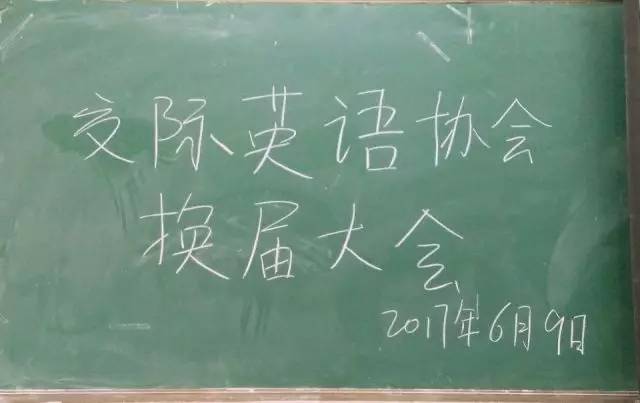 交际英语协会
换届大会
2017年6月9日